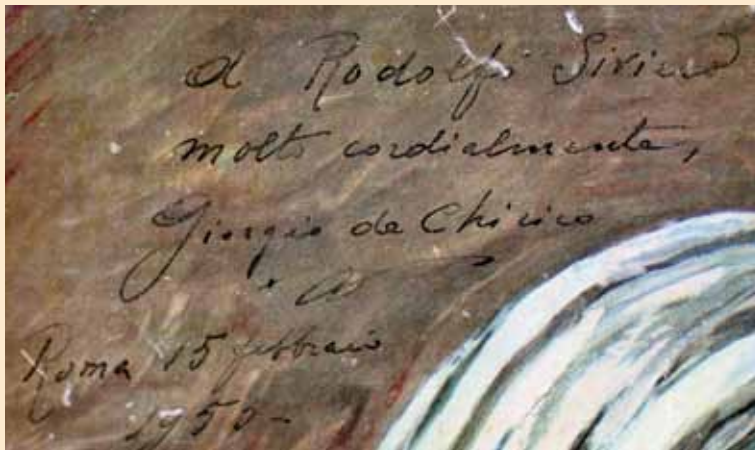 A Rodolfo Siviero
molto cordialmente,
Giorgio de Chirico
Roma 15 febbraio
1950-